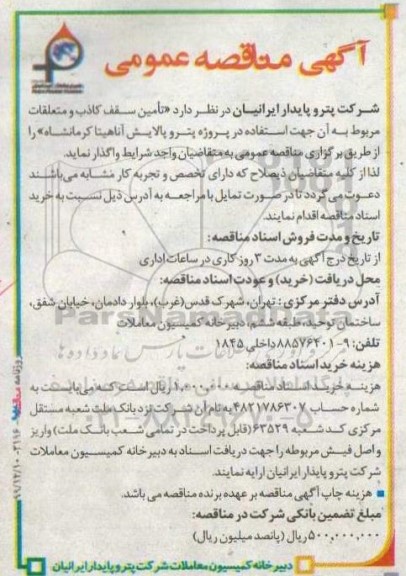 آگهی مناقصه عمومی
شرکت پترو پایدار ایرانیان در نظر دارد «تأمین سقف کاذب و متعلقات
مربوط به آن جهت استفاده در پروژه پترو پالایش آناهیتا کرمانشاه» را
از طریق برگزاری مناقصه عمومی به متقاضیان واجد شرایط واگذار نماید.
لذا از کلیه متقاضیان ذیصلاح که دارای تخصص و تجربه کار مشابه می‌باشند
دعوت می‌گردد تا در صورت تمایل با مراجعه به آدرس ذیل نسبت به خرید
اسناد مناقصه اقدام نمایند.
تاریخ و مدت فروش اسناد مناقصه:
از تاریخ درج آگهی به مدت ۳ روز کاری در ساعات اداری
محل دریافت (خرید) و عودت اسناد مناقصه:
آدرس دفتر مرکزی: تهران، شهرک قدس (غرب)، بلوار دادمان، خیابان شفق،
ساختمان توحید، طبقه ششم، دبیرخانه کمیسیون معاملات
تلفن: ۹-۸۸۵۷۶۴۰۱ داخلی ۱۸۴۵
هزینه خرید اسناد مناقصه:
هزینه خرید اسناد مناقصه ۱,۰۰۰,۰۰۰ ریال است که می بایست به
شماره حساب ۴۸۲۱۷۸۶۳۰۷ به نام آن شرکت نزد بانک ملت شعبه مستقل
مرکزی کد شعبه ۶۳۵۲۹ (قابل پرداخت در تمامی شعب بانک ملت) واریز
و اصل فیش مربوطه را جهت دریافت اسناد به دبیرخانه کمیسیون معاملات
شرکت پترو پایدار ایرانیان ارایه نمایند.
■ هزینه چاپ آگهی مناقصه بر عهده برنده مناقصه می باشد.
مبلغ تضمین بانکی شرکت در مناقصه:
۵۰۰,۰۰۰,۰۰۰ ریال (پانصد میلیون ریال)
دبیرخانه کمیسیون معاملات شرکت پترو پایدار ایرانیان
ParsNamadData